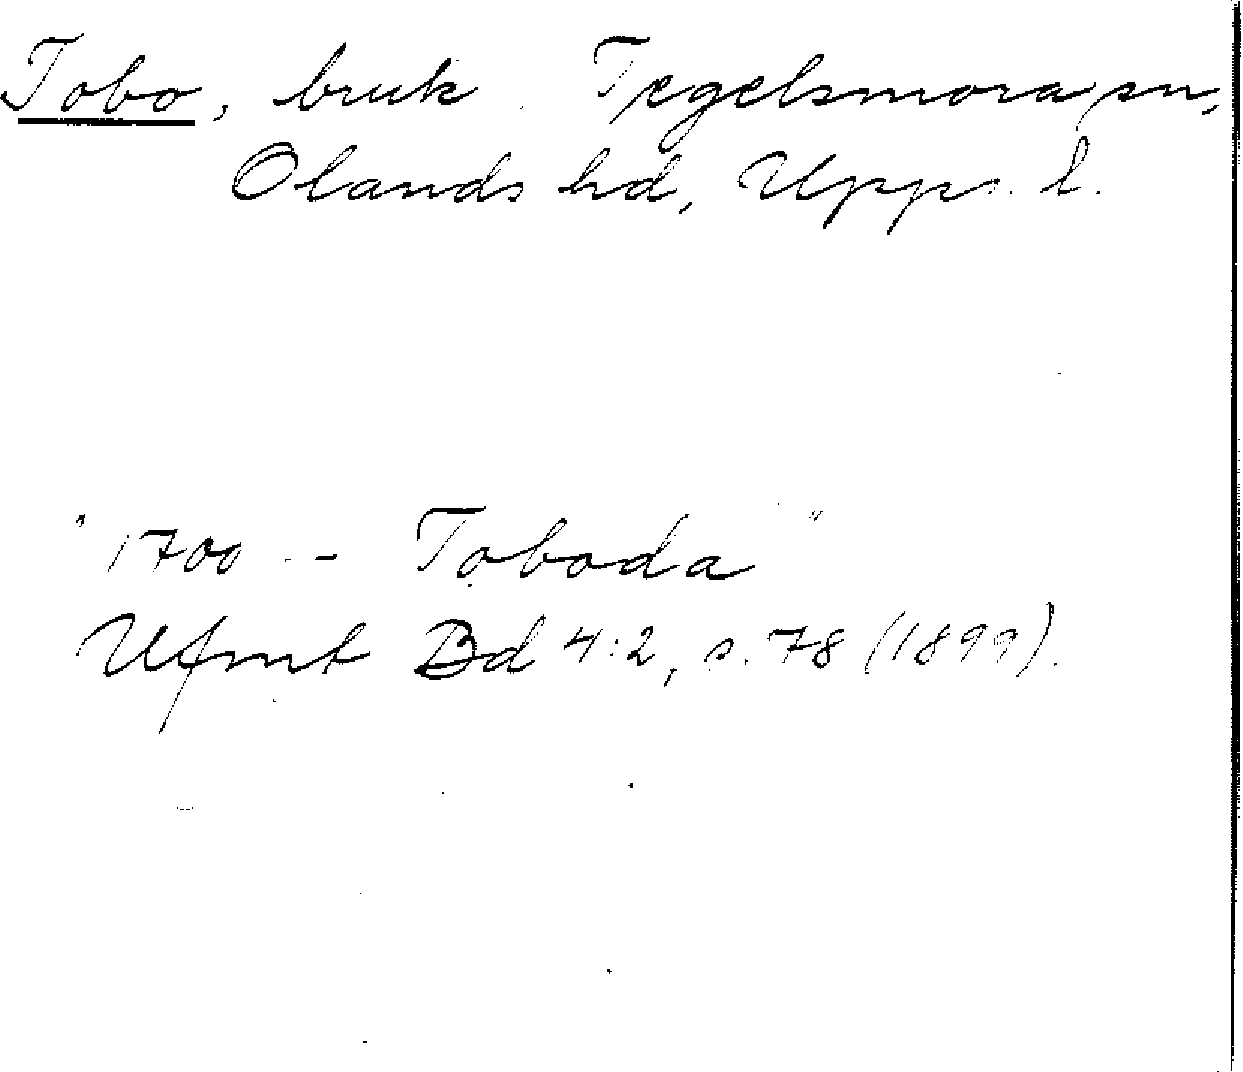 Tobo, bruk. Tegelsmora sn,
Olands hd, Upps. l.
"1700 -- Toboda"
Ufmt Bd 4:2, s. 78 (1899).